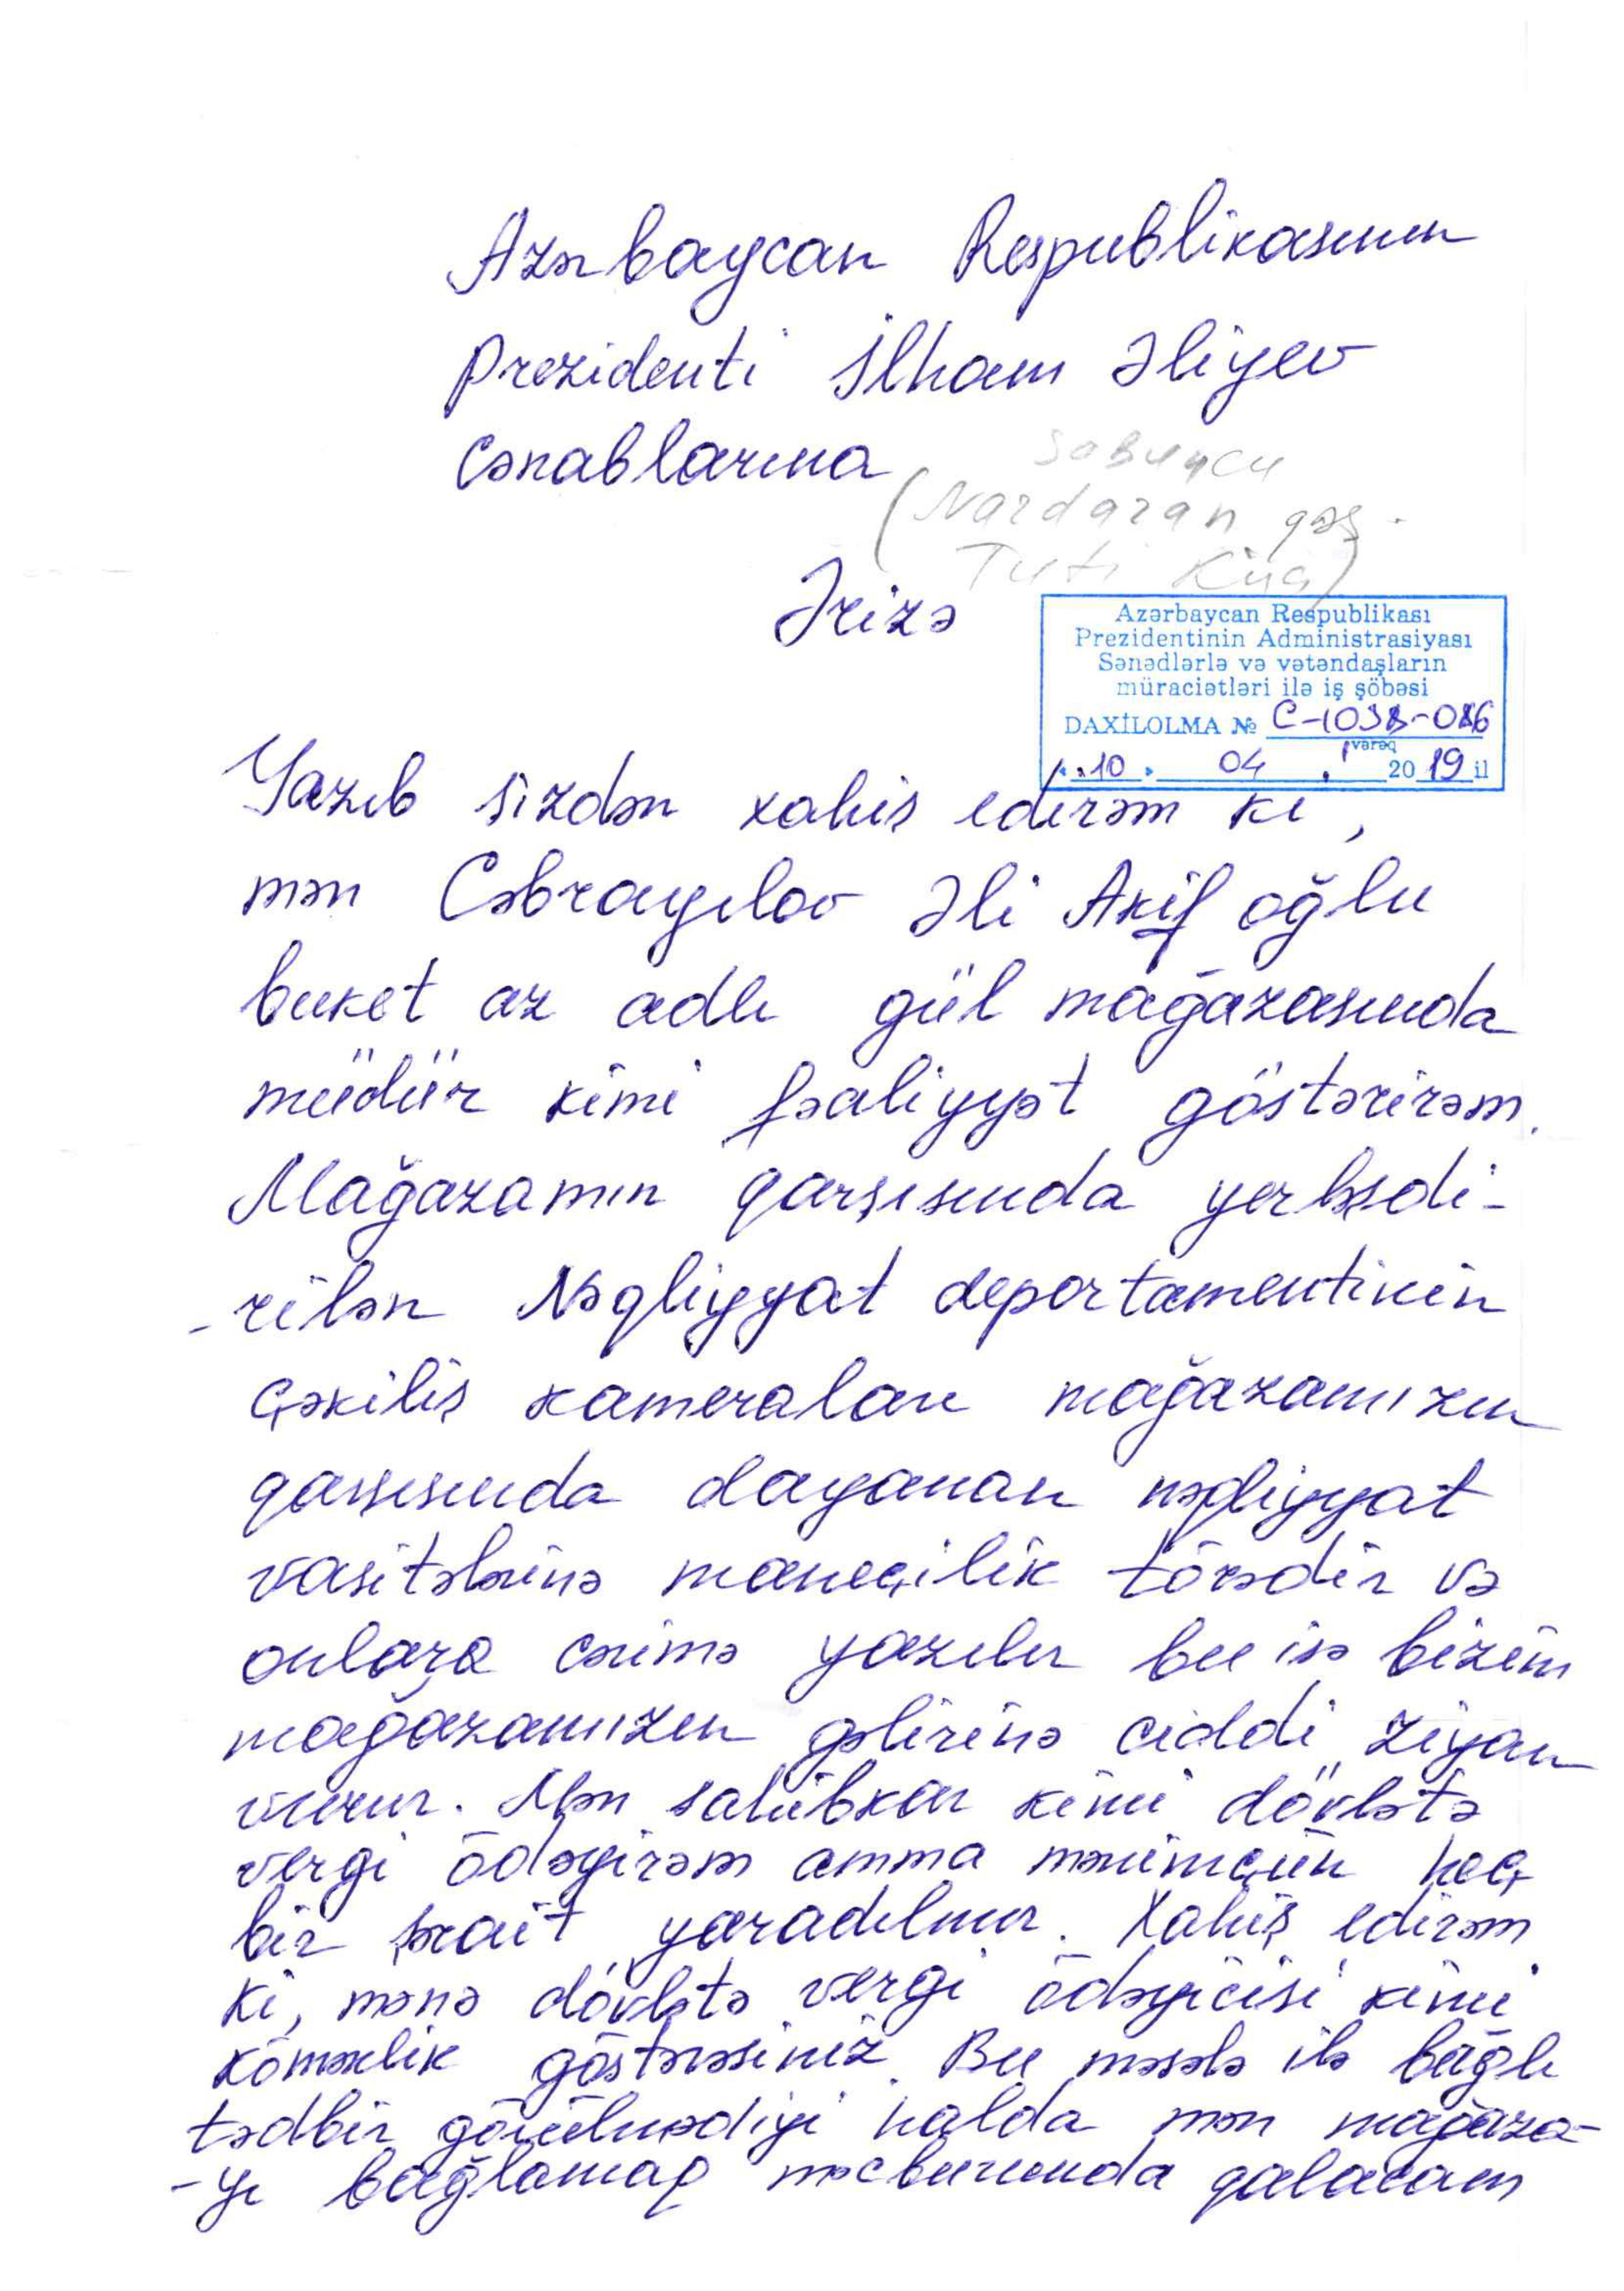 Azərbaycan Respublikasının
Prezidenti İlham Əliyev
Cənablarına
Sabunçu
(Nardaran qəs.
Tuti küç)
Ərizə
Azərbaycan Respublikası
Prezidentinin Administrasiyası
Sənədlərlə və vətəndaşların
müraciətləri ilə iş şöbəsi
DAXİLOLMA № C-1038-086
vərəq
«10» 04 2019 il
Yazıb sizdən xahiş edirəm ki,
mən Cəbrayılov Əli Akif oğlu
buket az adlı gül mağazasında
müdür kimi fəaliyyət göstərirəm.
Mağazamın qarşısında yerləşdi-
-rilən Nəqliyyat deportamentinin
çəkiliş kameraları mağazamızın
qarşısında dayanan nəqliyyat
vasitələrinə maneçilik törədir və
onlara cərimə yazılır bu isə bizim
mağazamızın gəlirinə ciddi ziyan
vurur. Mən sahibkar kimi dövlətə
vergi ödəyirəm amma mənimçün heç
bir şərait yaradılmır. Xahiş edirəm
ki, mənə dövlətə vergi ödəyicisi kimi
köməklik göstərəsiniz. Bu məsələ ilə bağlı
tədbir görülmədiyi halda mən mağaza-
-yı bağlamaq məcburunda qalacam